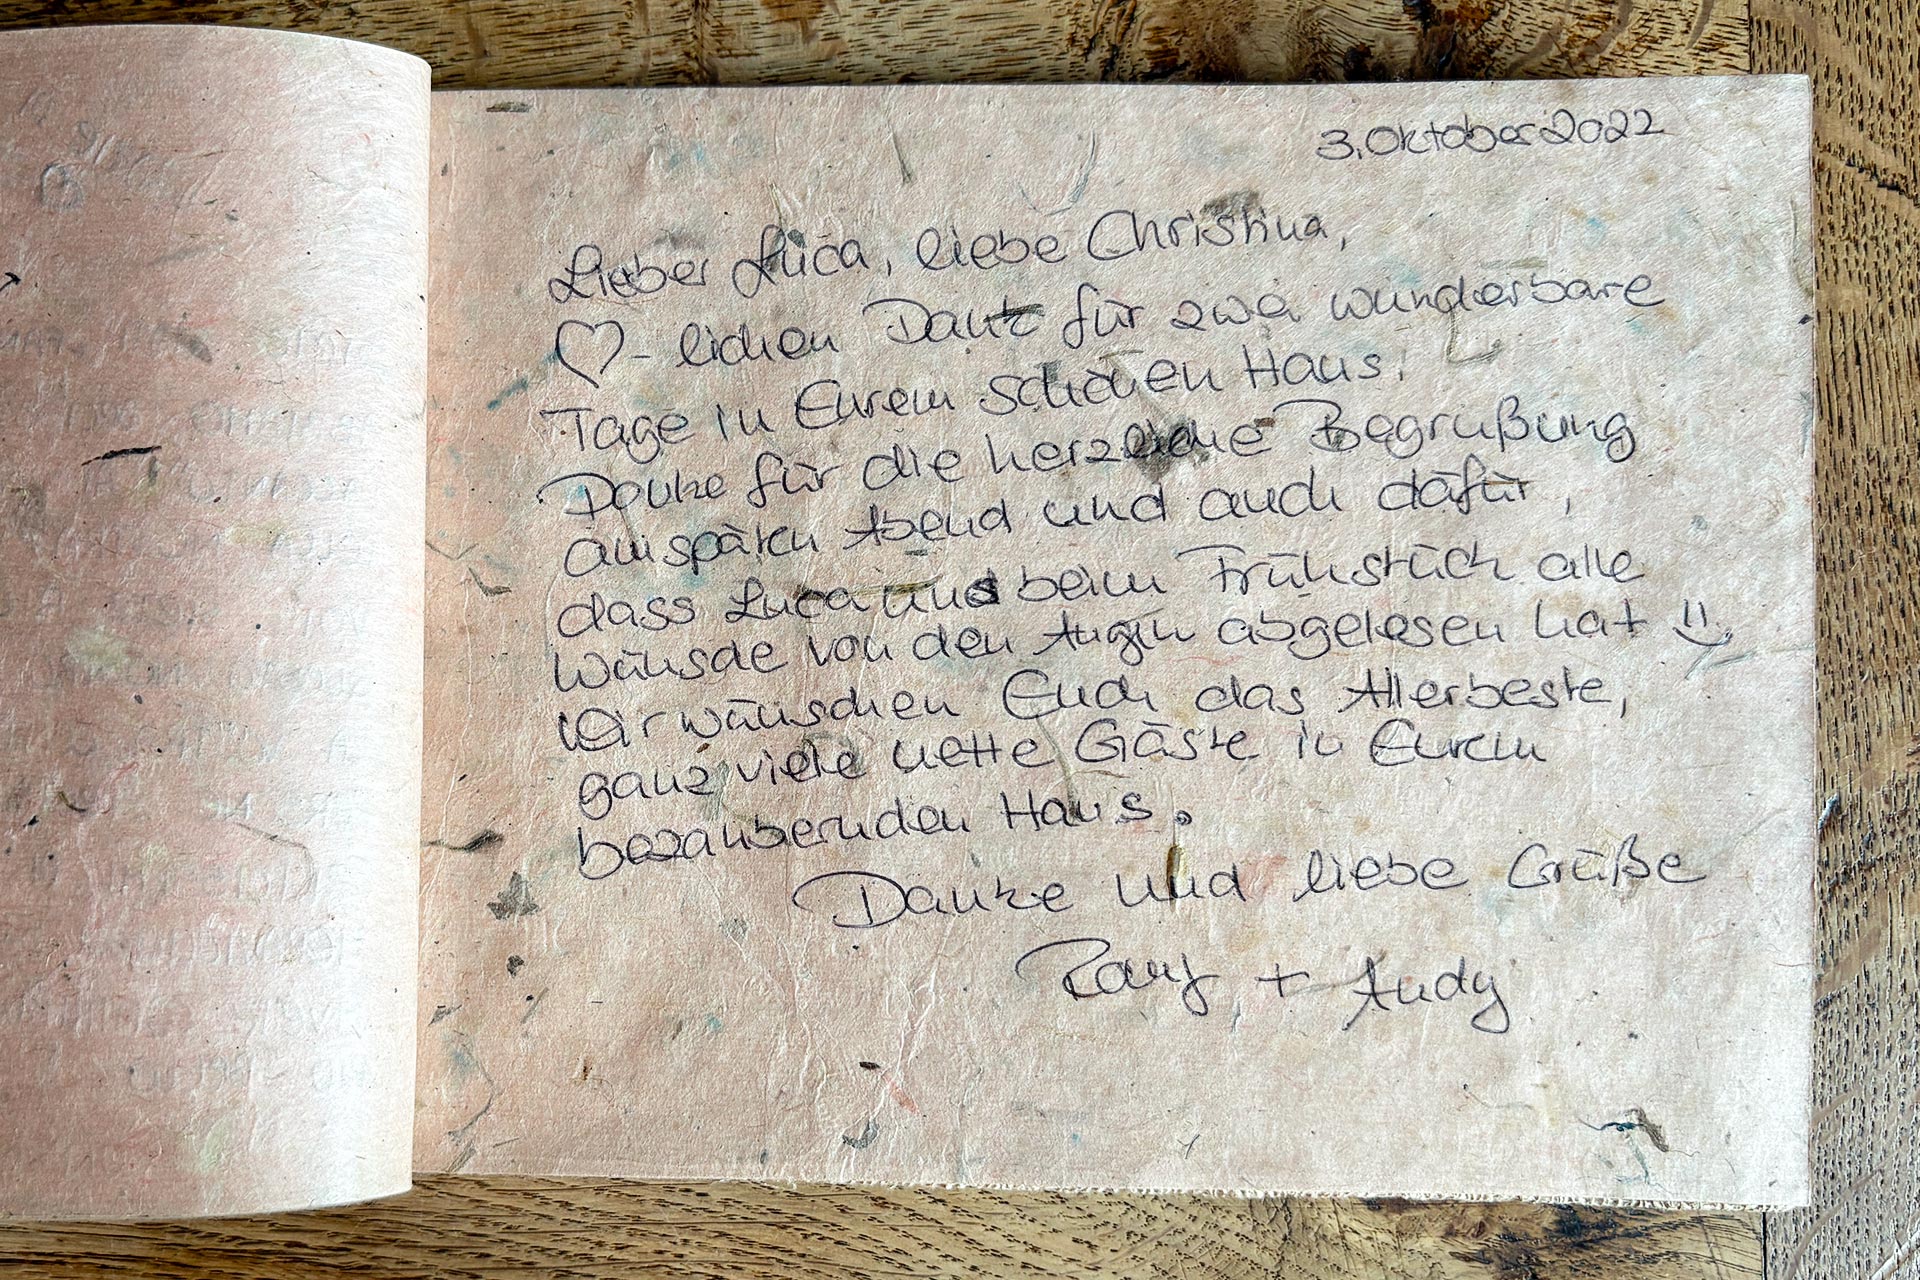 3. Oktober 2022
Lieber Luca, liebe Christina,
♡-lichen Dank für zwei wunderbare
Tage in Eurem schönen Haus!
Danke für die herzliche Begrüßung
am späten Abend und auch dafür,
dass Luca uns beim Frühstück alle
Wünsche von den Augen abgelesen hat :)
Wir wünschen Euch das Allerbeste,
ganz viele nette Gäste in Eurem
bezaubernden Haus.
Danke und liebe Grüße
+ Andy